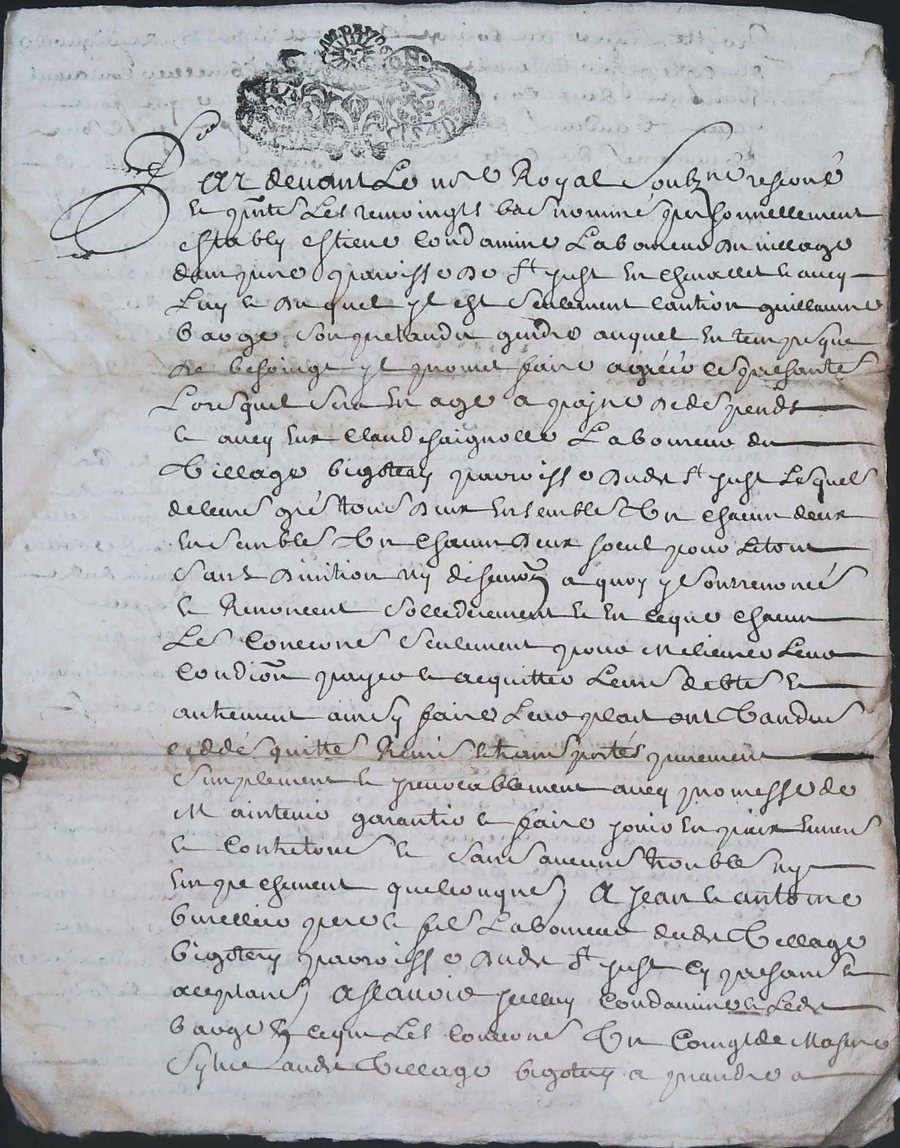 Par devant Le nre Royal Soubzné reservé
et pntz Les temoingts bas nommé personnellement
estably estiene Condamine Laboureur du village
paroisse de St just en chevallet avec
Luy et duquel yl est seulement caution guillaume
barge son pretandu gendre auquel en temps que
de besoingt yl promet faire agréér ces presantes
Lors quil sera en age a payne de despends
et avec eux Claud chaignolle Laboureur du
Village bigotery parroisse dudt St just Lesquels
de leurs gré tous deux ensembles Un chacun deux
ensembles Un chacun deux seul pour Le tout
sans division ny a quoy yl ont renoncés
et Renoncent sollidérement et en ce que chacun
Les Concerne seulement pour meliorer Leur
Condiõn payer et acquitter Leurs debtes et
autrement ainsy faire Leur plait ont Vandus
ceddés quittés Remis et transportés purement
simplement et yrevocablement avec promesse de
Maintenir garantir et faire jouir en paix envers
et Contre tous et sans aucuns troubles ny
enpechement quelconques A jean et antoine
pere et fils Laboureur dudt Village
bigotery parroisse dudt St just cy presants et
aceptants Ascavoir jceluy Condamine et Ledt
barge en ce qui Les concerne Un Comgt de Masure
Sytué audt Village bigotery a prandre a